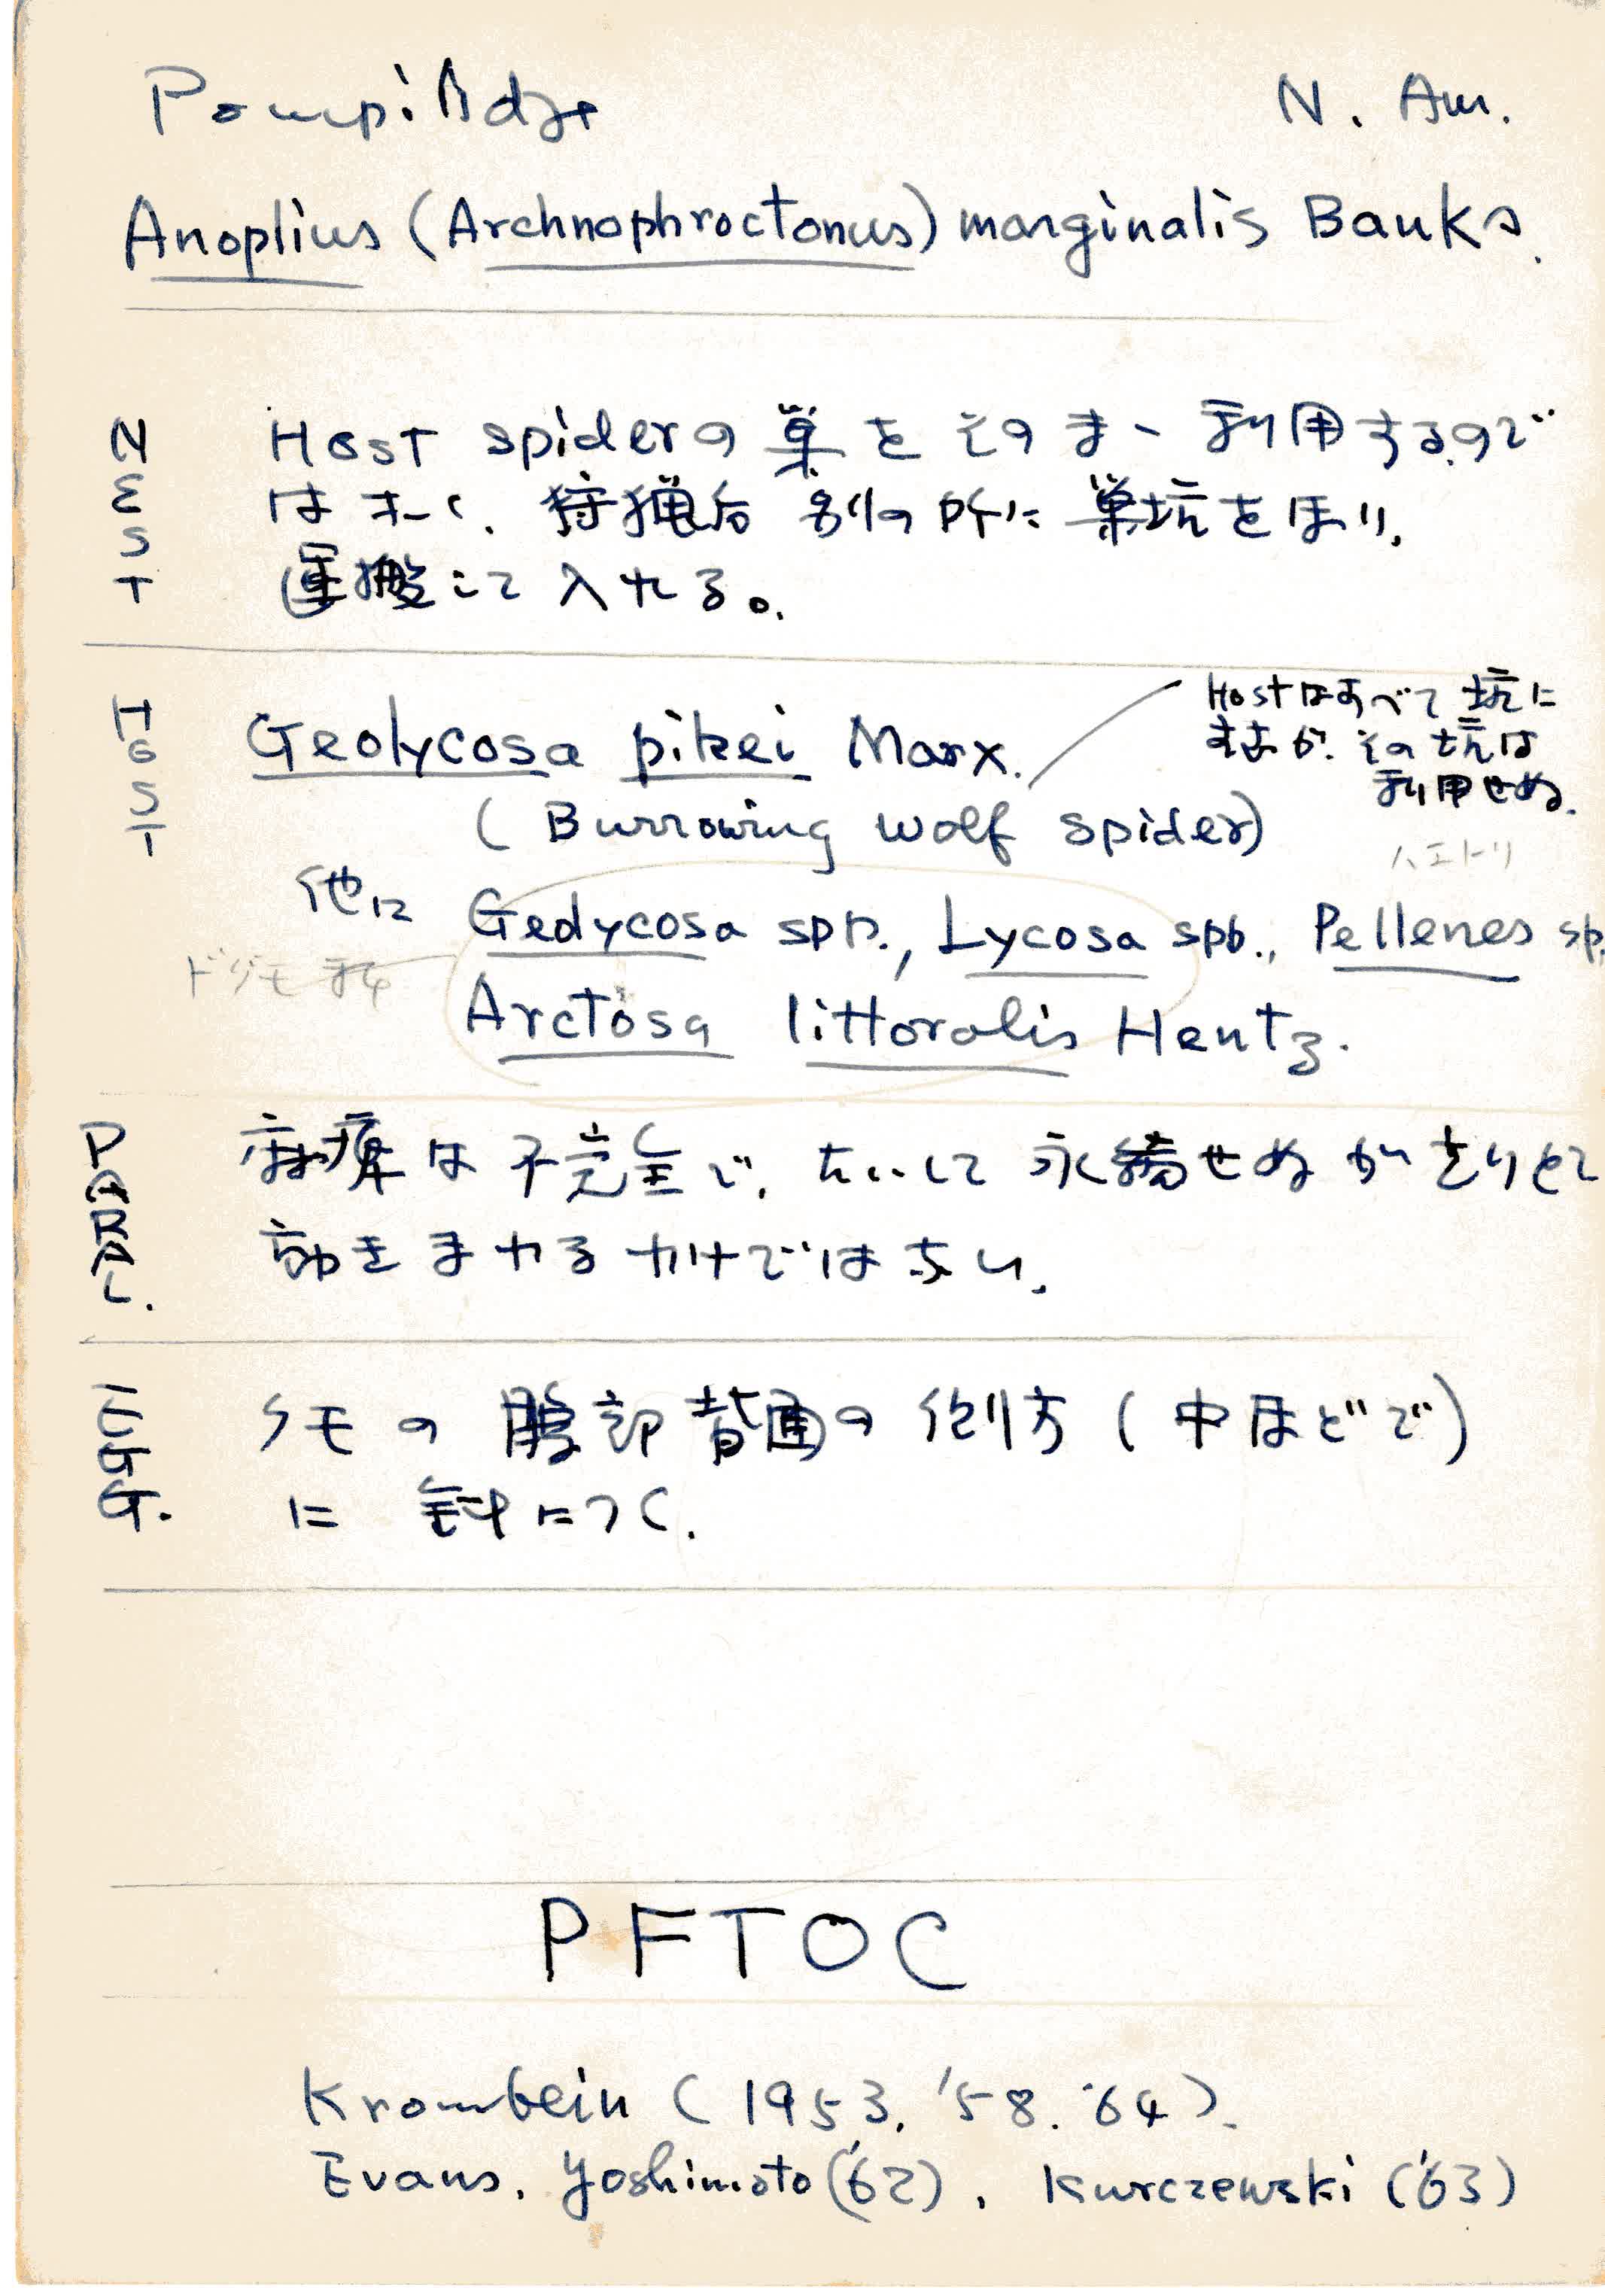 Pompilidae N. Am.
Anoplius (Archnophroctonus) marginalis Banks.
NEST
Host spiderの巣をそのまゝ利用するので
はなく、狩猟后 別の所に巣坑をほり、
運搬して入れる。
HOST
Geolycosa pikei Marx.
Hostはすべて坑に
すむが、その坑は
利用せぬ.
(Burrowing wolf spider)
ハエトリ
他に Geolycosa spp., Lycosa spp., Pellenes sp.
ドクグモ科
Arctosa littoralis Hentz.
PARAL.
麻痺は不完全で、たいして永続せぬが とりたて
動きまわるわけではない.
EGG.
クモの腹部背面の側方 (中ほどで)
に斜につく.
PFTOC
Krombein (1953, '58. '64).
Evans, Yoshimoto ('62), Kurczewski ('63)